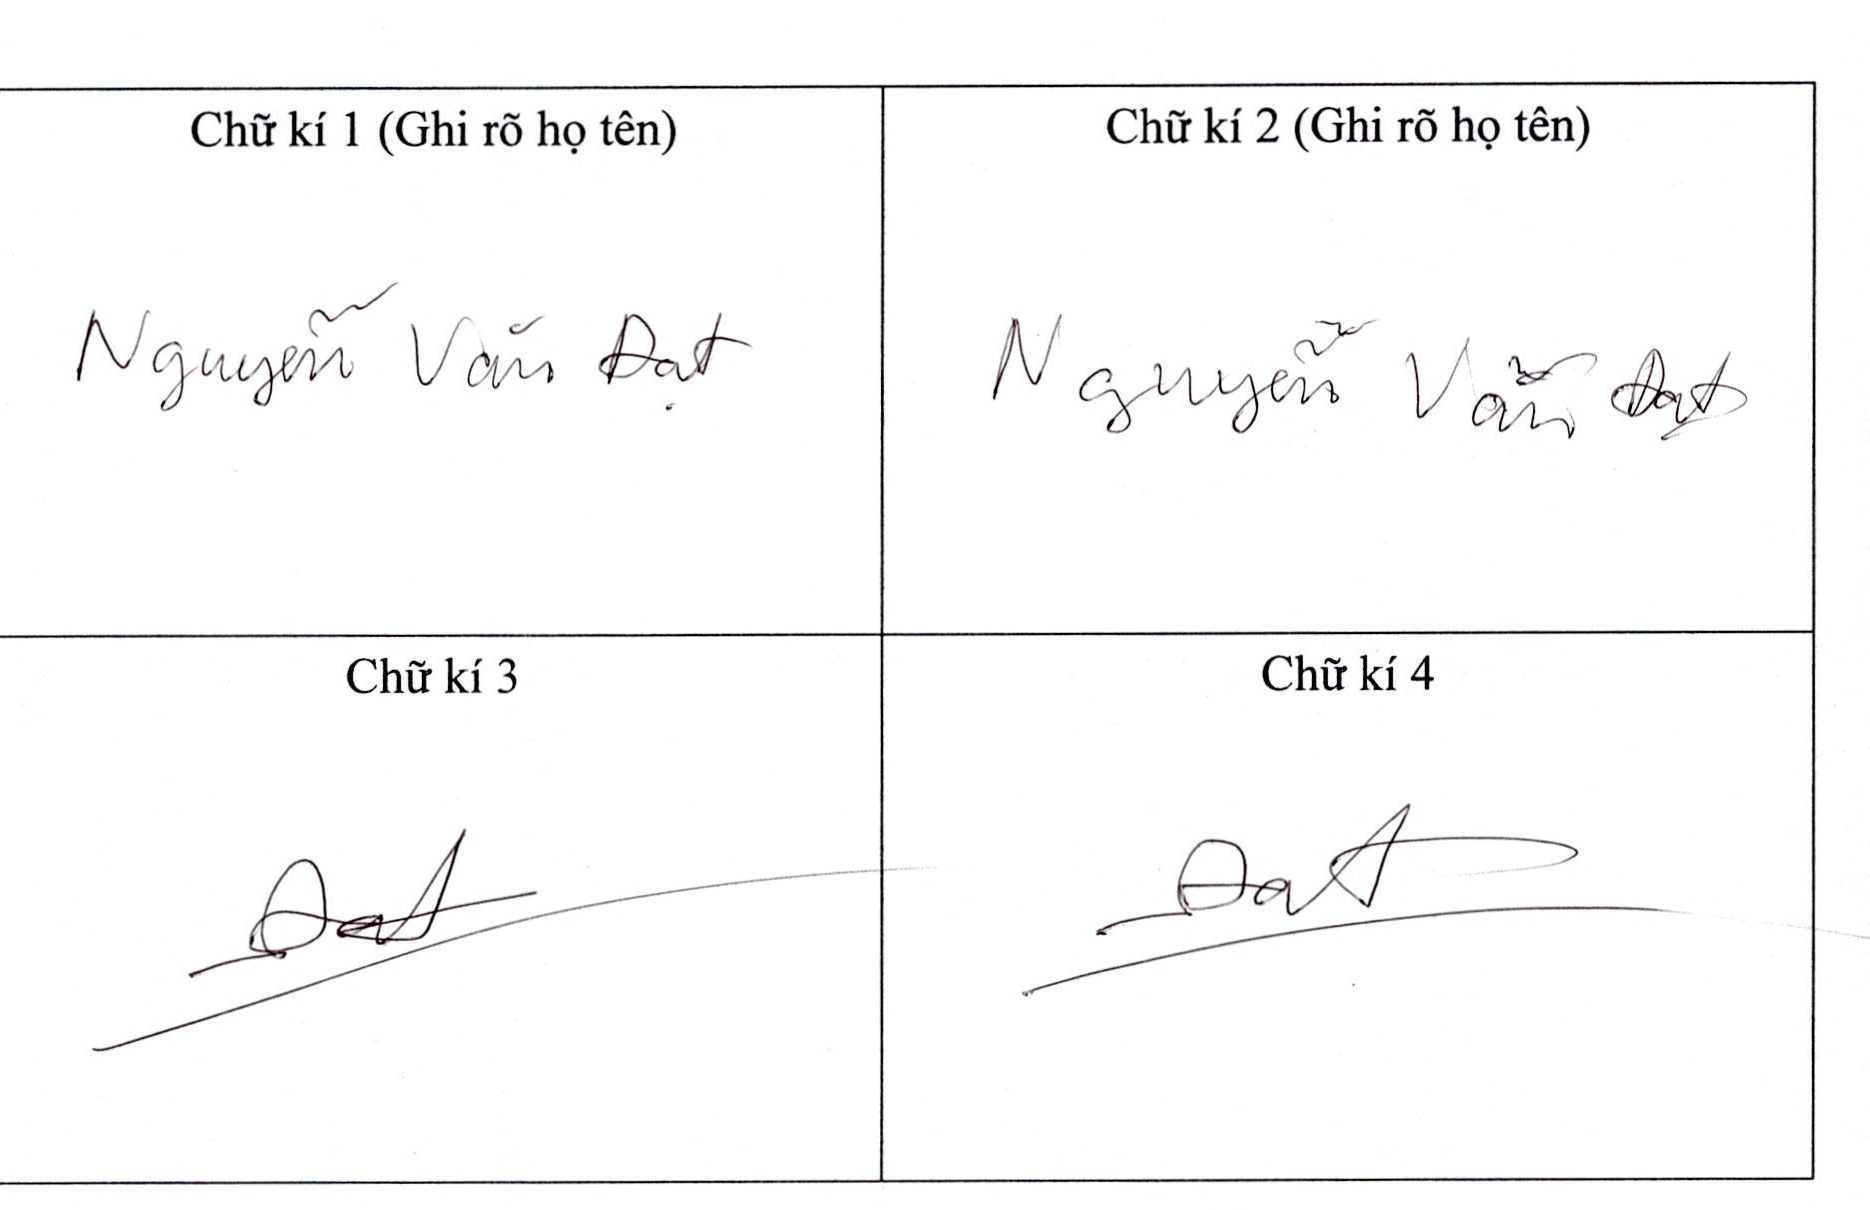 Chữ kí 1 (Ghi rõ họ tên)
Chữ kí 2 (Ghi rõ họ tên)
Nguyễn Văn Đạt
Nguyễn Văn Đạt
Chữ kí 3
Chữ kí 4
Đat
Đat